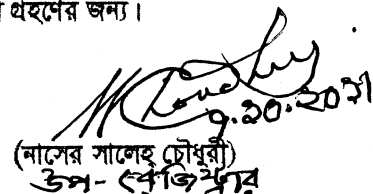 গ্রহণের জন্য।
৭.১০.২০২১
(নাসের সালেহ চৌধুরী)
উপ-রেজিস্ট্রার